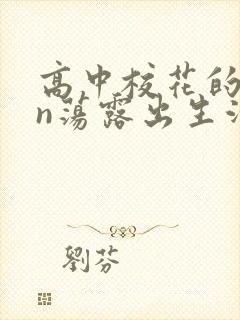 高中校花的
n荡露出生活
劉芬